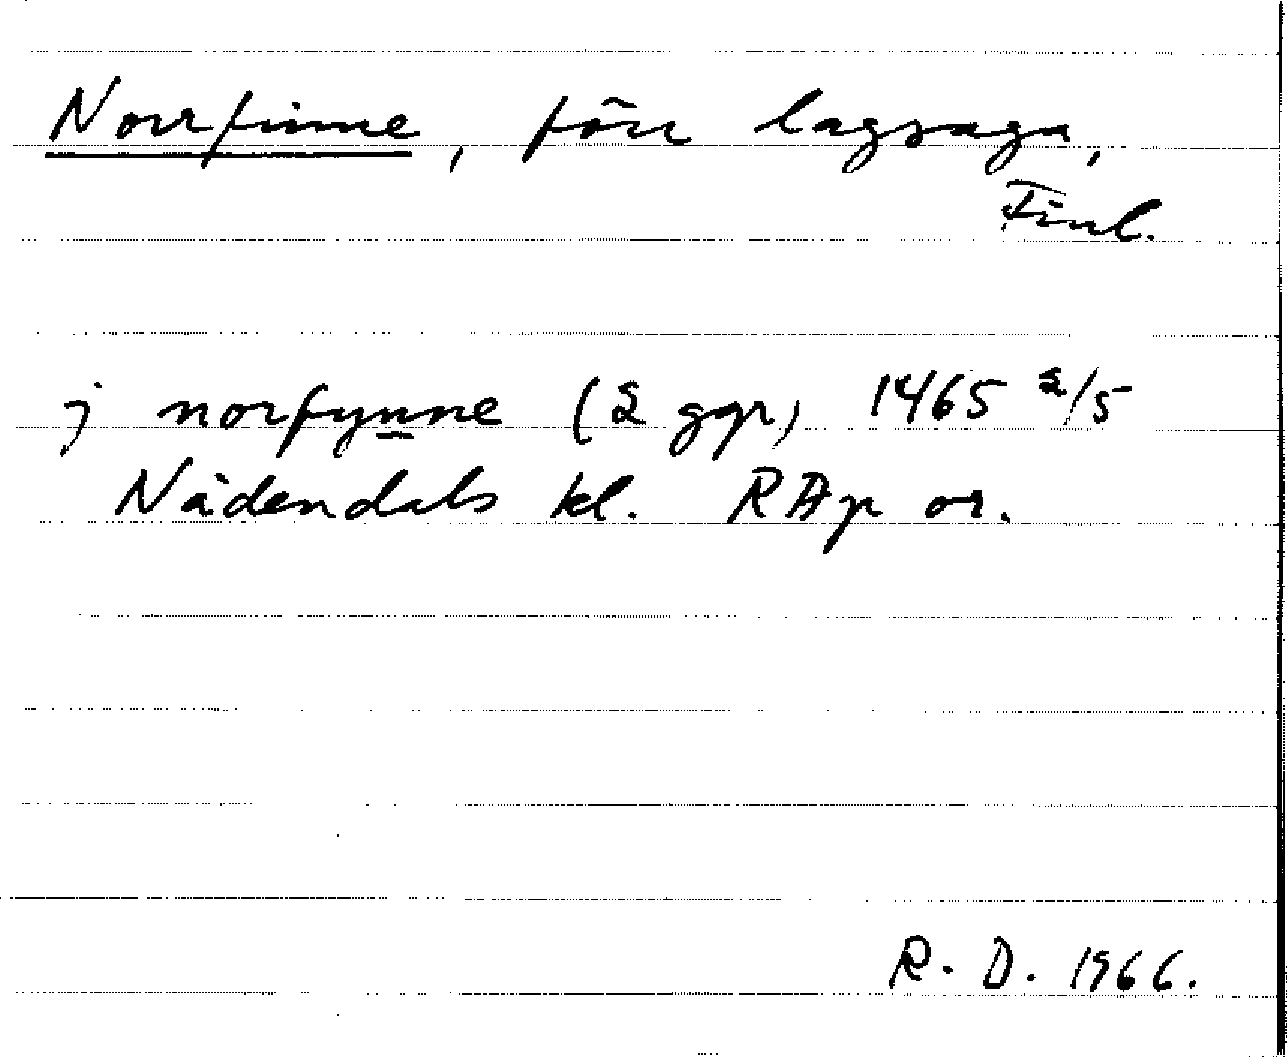 Norrfinne, förr lagsaga,
Finl.
j norfynne (2 ggr) 1465 2/5
Nådendals kl. RAp or.
R. D. 1966.